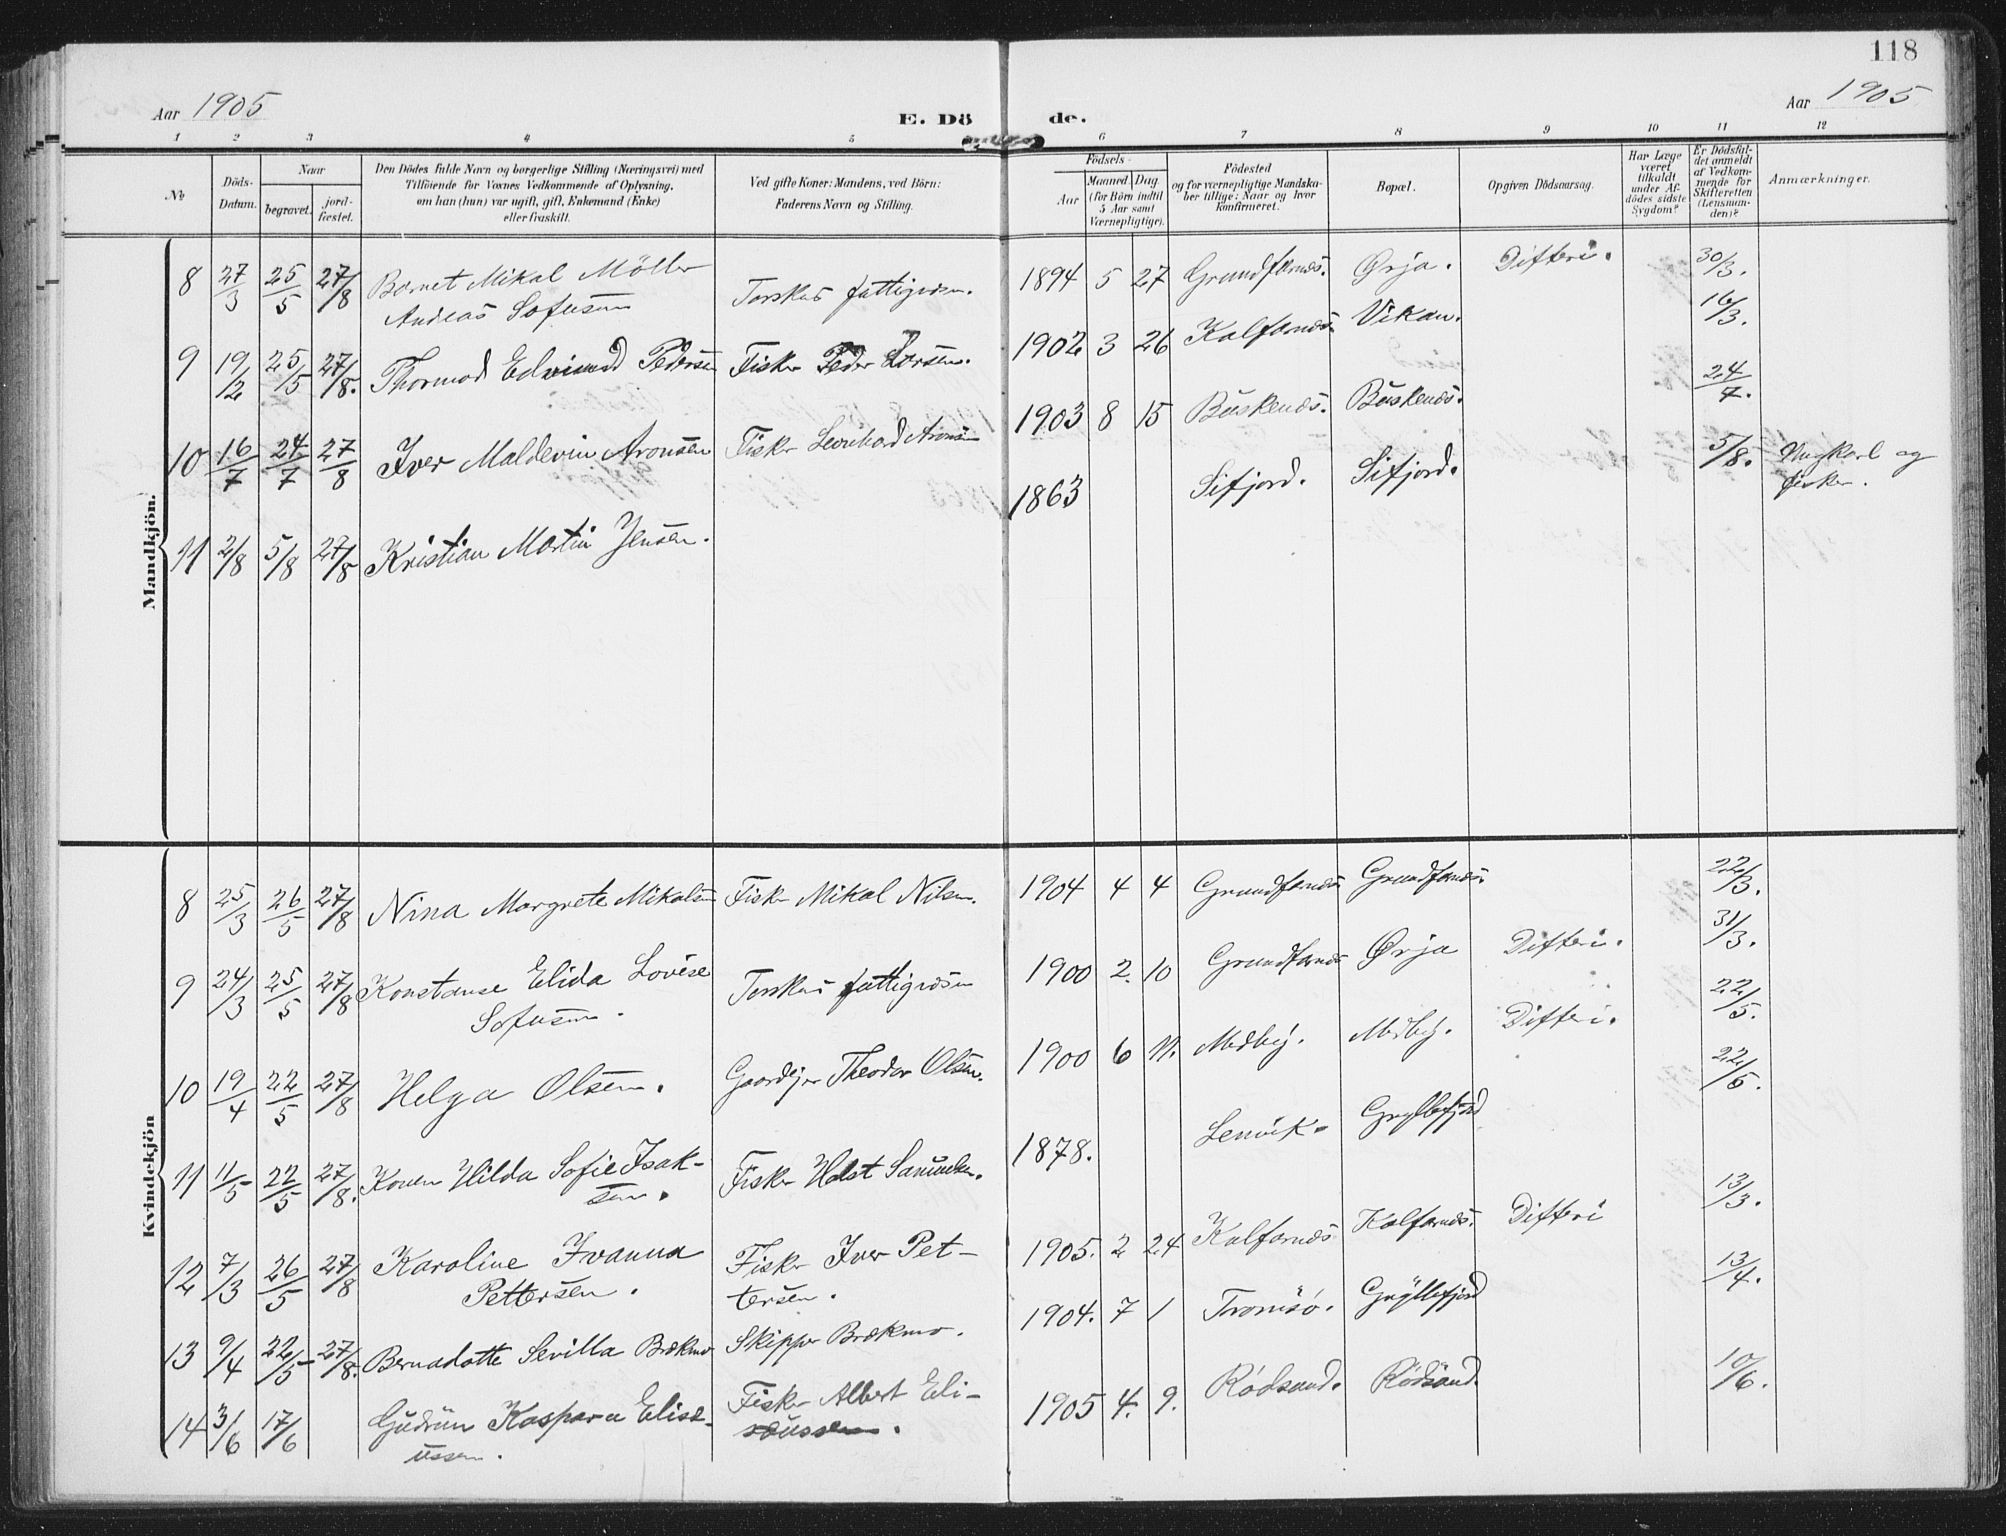 118
Aar 1905
E. Dö de.
Aar 1905
1 2 3 4 5 6 7 8 9 10 11 12
No
Döds-Datum.
Naar
begravet.
jord-fæstet.
Den Dödes fulde Navn og borgerlige Stilling (Næringsvei) med
Tilföiende for Voxnes Vedkommende af Oplysning,
om han (hun) var ugift, gift, Enkemand (Enke)
eller fraskilt.
Ved gifte Koner: Mandens, ved Börn:
Faderens Navn og Stilling.
Födsels-
Aar
Maaned. Dag
(for Börn indtil
5 Aar samt
Værnepligtige).
Födested
og for værnepligtige Mandska-
ber tillige: Naar og hvor
konfirmeret.
Bopæl.
Opgiven Dödsaarsag.
Har Læge
været
tilkaldt
under Af-
dödes sidste
Sygdom?
Er Dödsfal-
det anmeldt
af Vedkom-
mende for
Skifteretten
(Lensman-
den)?
Anmærkninger.
Mandkjön.
8 27/3 25/5 27/8 Barnet Mikal Möller Torskens fattigvæsen. 1894 5 27 Grundfarnes. Ørja. Difteri. 30/3.
Andreas Sofusen
9 19/2 25/5 27/8. Thormod Edvind Pedersen Fisker Peder Larsen. 1902 3 26 Kalfarnes. Vikan. 16/3.
10 16/7 24/7 27/8 Iver Maldevin Aronsen Fisker Leonhard Aronsen 1903 8 15 Buskenes. Buskenes. 24/7.
11 2/8 5/8 27/8 Kristian Martin Jensen. 1863 Sifjord. Sifjord. 5/8. Ungkarl og
fisker.
Kvindekjön
8 25/3 26/5 27/8 Nina Margrete Mikalsen Fisker Mikal Nilsen. 1904 4 4 Grundfarnes Grundfarnes. 22/3.
9 24/3 25/5 27/8 Konstanse Elida Lovise Torskens fattigvæsen 1900 2. 10 Grundfarnes Ørja Difteri. 31/3.
Sofusen.
10 19/4 22/5 27/8 Helga Olsen. Gaardejer Theodor Olsen. 1900 6 11. Medby. Medby. Difteri. 22/5.
11 11/5 22/5 27/8. Konen Hilda Sofie Isak- Fisker Holst Samuelsen. 1878. Lenvik. Gryllefjord 22/5.
sen.
12 7/3 26/5 27/8 Karoline Ivanna Fisker Iver Pet- 1905. 2 24 Kalfarnes Kalfarnes. Difteri 13/3.
Pettersen. tersen.
13 9/4 22/5 27/8. Bernadotte Sevilla Brækmo Skipper Brækmo. 1904. 7 1 Tromsö. Gryllefjord 13/4.
14 3/6 17/6 Gudrun Kaspara Elise- Fisker Albert Eli- 1905 4. 9. Rödsand. Rödsand. 10/6.
ussen. sæussen.